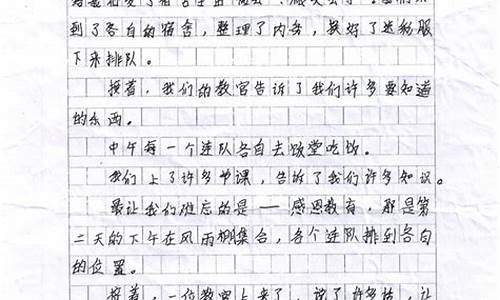 到了各自的宿舍，整理了内务，换好了迷彩服
下来排队。
接着，我们的教官告诉了我们许多要知道
的东西。
中午每一个连队各自去饭堂吃饭。
我们上了许多节课，告诉了我们许多知识。
最让我们难忘的是——感恩教育，那是第
二天的下午在风雨棚集合，各个连队排到各自
的位置。
接着，一位教官上来了，说了许多话，让